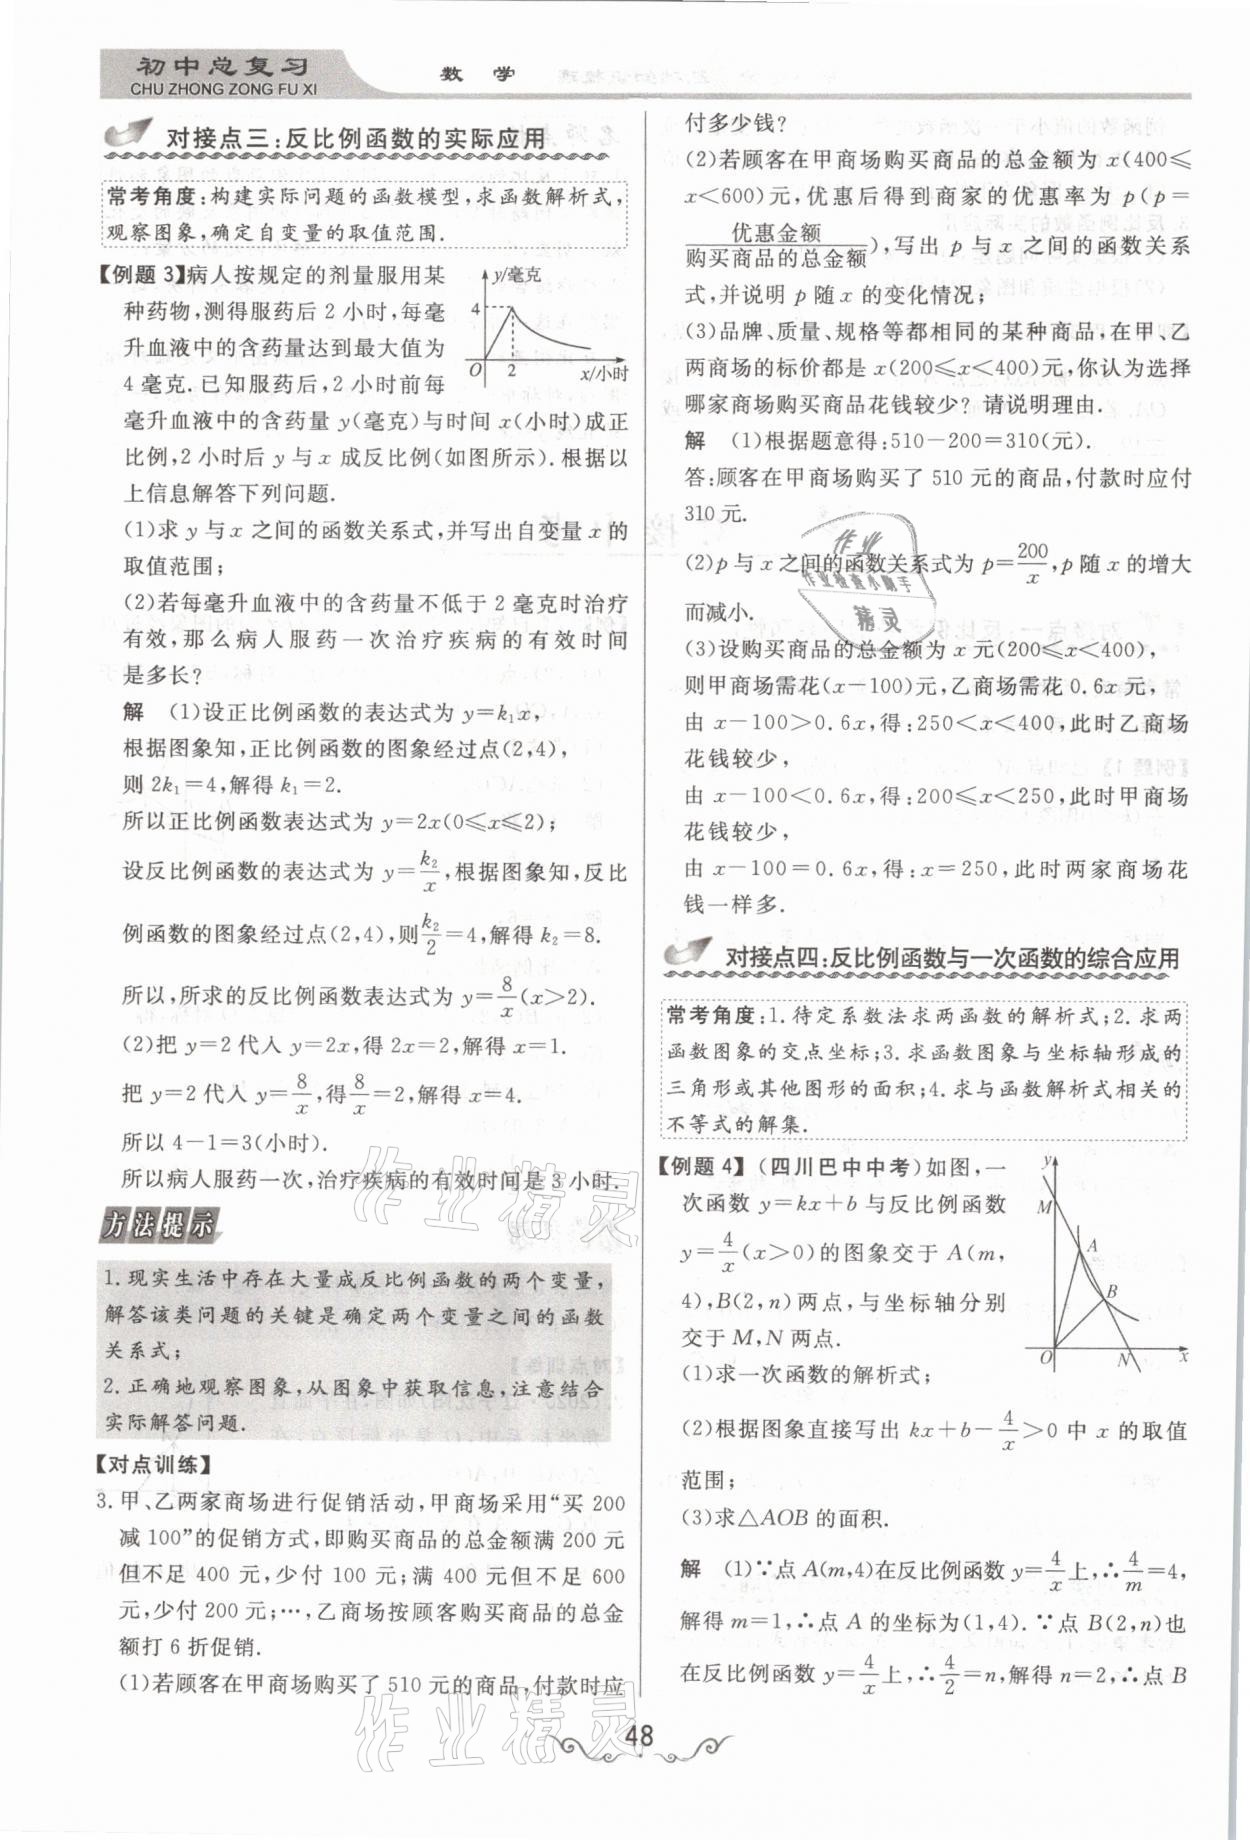 初中总复习
CHU ZHONG ZONG FU XI
数 学
对接点三:反比例函数的实际应用
常考角度:构建实际问题的函数模型,求函数解析式,
观察图象,确定自变量的取值范围.
【例题 3】病人按规定的剂量服用某
种药物,测得服药后 2 小时,每毫
升血液中的含药量达到最大值为
4 毫克.已知服药后,2 小时前每
毫升血液中的含药量 y(毫克)与时间 x(小时)成正
比例,2 小时后 y 与 x 成反比例(如图所示).根据以
上信息解答下列问题.
y/毫克
4
O
2
x/小时
(1)求 y 与 x 之间的函数关系式,并写出自变量 x 的
取值范围;
(2)若每毫升血液中的含药量不低于 2 毫克时治疗
有效,那么病人服药一次治疗疾病的有效时间
是多长?
解 (1)设正比例函数的表达式为 y=k₁x,
根据图象知,正比例函数的图象经过点(2,4),
则 2k₁=4,解得 k₁=2.
所以正比例函数表达式为 y=2x(0≤x≤2);
设反比例函数的表达式为 y=k₂/x,根据图象知,反比
例函数的图象经过点(2,4),则k₂/2=4,解得 k₂=8.
所以,所求的反比例函数表达式为 y=8/x(x>2).
(2)把 y=2 代入 y=2x,得 2x=2,解得 x=1.
把 y=2 代入 y=8/x,得8/x=2,解得 x=4.
所以 4-1=3(小时).
所以病人服药一次,治疗疾病的有效时间是 3 小时.
方法提示
1.现实生活中存在大量成反比例函数的两个变量,
解答该类问题的关键是确定两个变量之间的函数
关系式;
2.正确地观察图象,从图象中获取信息,注意结合
实际解答问题.
【对点训练】
3.甲、乙两家商场进行促销活动,甲商场采用“买 200
减 100”的促销方式,即购买商品的总金额满 200 元
但不足 400 元,少付 100 元;满 400 元但不足 600
元,少付 200 元;…,乙商场按顾客购买商品的总金
额打 6 折促销.
(1)若顾客在甲商场购买了 510 元的商品,付款时应
付多少钱?
(2)若顾客在甲商场购买商品的总金额为 x(400≤
x<600)元,优惠后得到商家的优惠率为 p(p=
优惠金额/购买商品的总金额),写出 p 与 x 之间的函数关系
式,并说明 p 随 x 的变化情况;
(3)品牌、质量、规格等都相同的某种商品,在甲、乙
两商场的标价都是 x(200≤x<400)元,你认为选择
哪家商场购买商品花钱较少? 请说明理由.
解 (1)根据题意得:510-200=310(元).
答:顾客在甲商场购买了 510 元的商品,付款时应付
310 元.
(2)p 与 x 之间的函数关系式为 p=200/x,p 随 x 的增大
而减小.
(3)设购买商品的总金额为 x 元(200≤x<400),
则甲商场需花(x-100)元,乙商场需花 0.6x 元,
由 x-100>0.6x,得:250<x<400,此时乙商场
花钱较少,
由 x-100<0.6x,得:200≤x<250,此时甲商场
花钱较少,
由 x-100=0.6x,得:x=250,此时两家商场花
钱一样多.
作业
作业检查小助手
精灵
对接点四:反比例函数与一次函数的综合应用
常考角度:1.待定系数法求两函数的解析式;2.求两
函数图象的交点坐标;3.求函数图象与坐标轴形成的
三角形或其他图形的面积;4.求与函数解析式相关的
不等式的解集.
【例题 4】(四川巴中中考)如图,一
次函数 y=kx+b 与反比例函数
y=4/x(x>0)的图象交于 A(m,
4),B(2,n)两点,与坐标轴分别
交于 M,N 两点.
y
M
A
B
O
N
x
(1)求一次函数的解析式;
(2)根据图象直接写出 kx+b-4/x>0 中 x 的取值
范围;
(3)求△AOB 的面积.
解 (1)∵点 A(m,4)在反比例函数 y=4/x上,∴4/m=4,
解得 m=1,∴点 A 的坐标为(1,4).∵点 B(2,n)也
在反比例函数 y=4/x上,∴4/2=n,解得 n=2,∴点 B
作业精灵
作业精灵
48